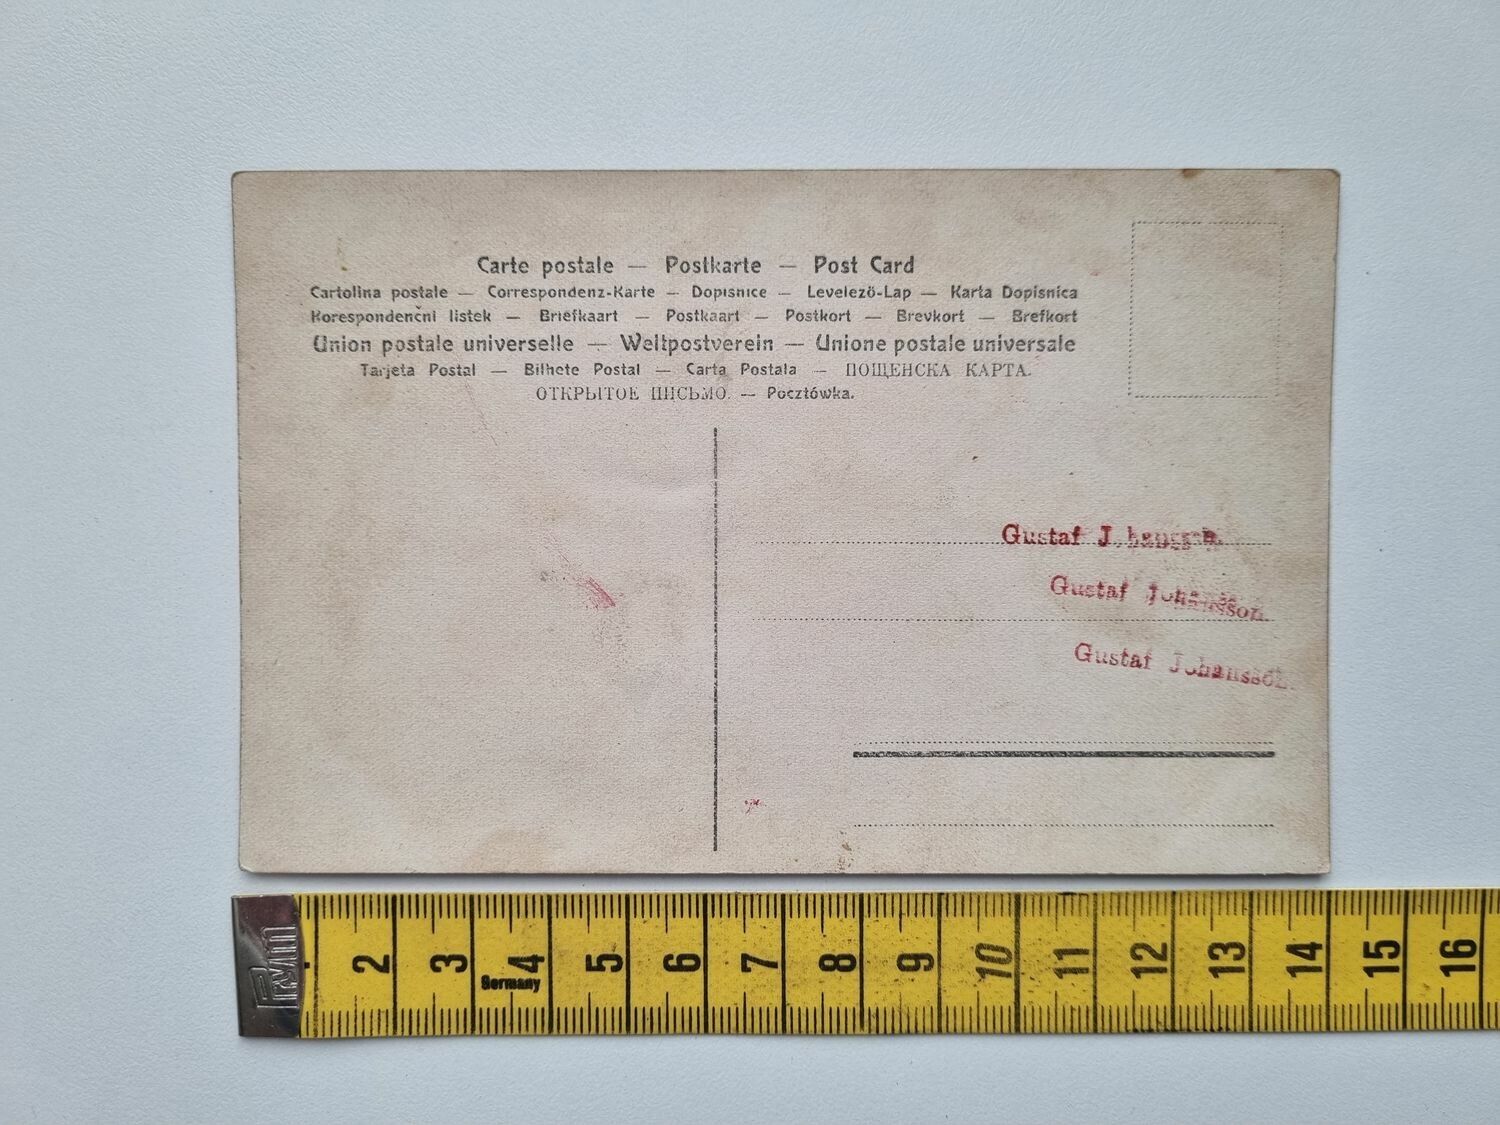 Carte postale — Postkarte — Post Card
Cartolina postale — Correspondenz-Karte — Dopisnice — Levelező-Lap — Karta Dopisnica
Korespondenční listek — Briefkaart — Postkaart — Postkort — Brevkort — Brefkort
Union postale universelle — Weltpostverein — Unione postale universale
Tarjeta Postal — Bilhete Postal — Carta Postala — ПОЩЕНСКА КАРТА.
ОТКРЫТОЕ ПИСЬМО. — Pocztówka.
Gustaf
Gustaf Johansson.
Gustaf Johansson.
PMM
2 3 4 5 6 7 8 9 10 11 12 13 14 15 16
Germany